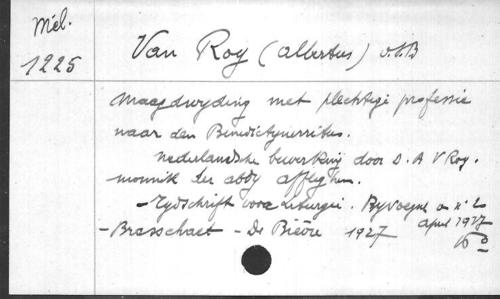 Mél.
1225
Van Roy (Albertus) o.s.B
Maagdwyding met plechtige professie
naar den Benedictynerritus.
Nederlandsche bewerking door D. A V Roy.
monnik der abdy Afflighem.
- Tydschrift voor Liturgie. Byvoegsel n° 2
april 1927
- Brasschaet - De Bièvre 1927